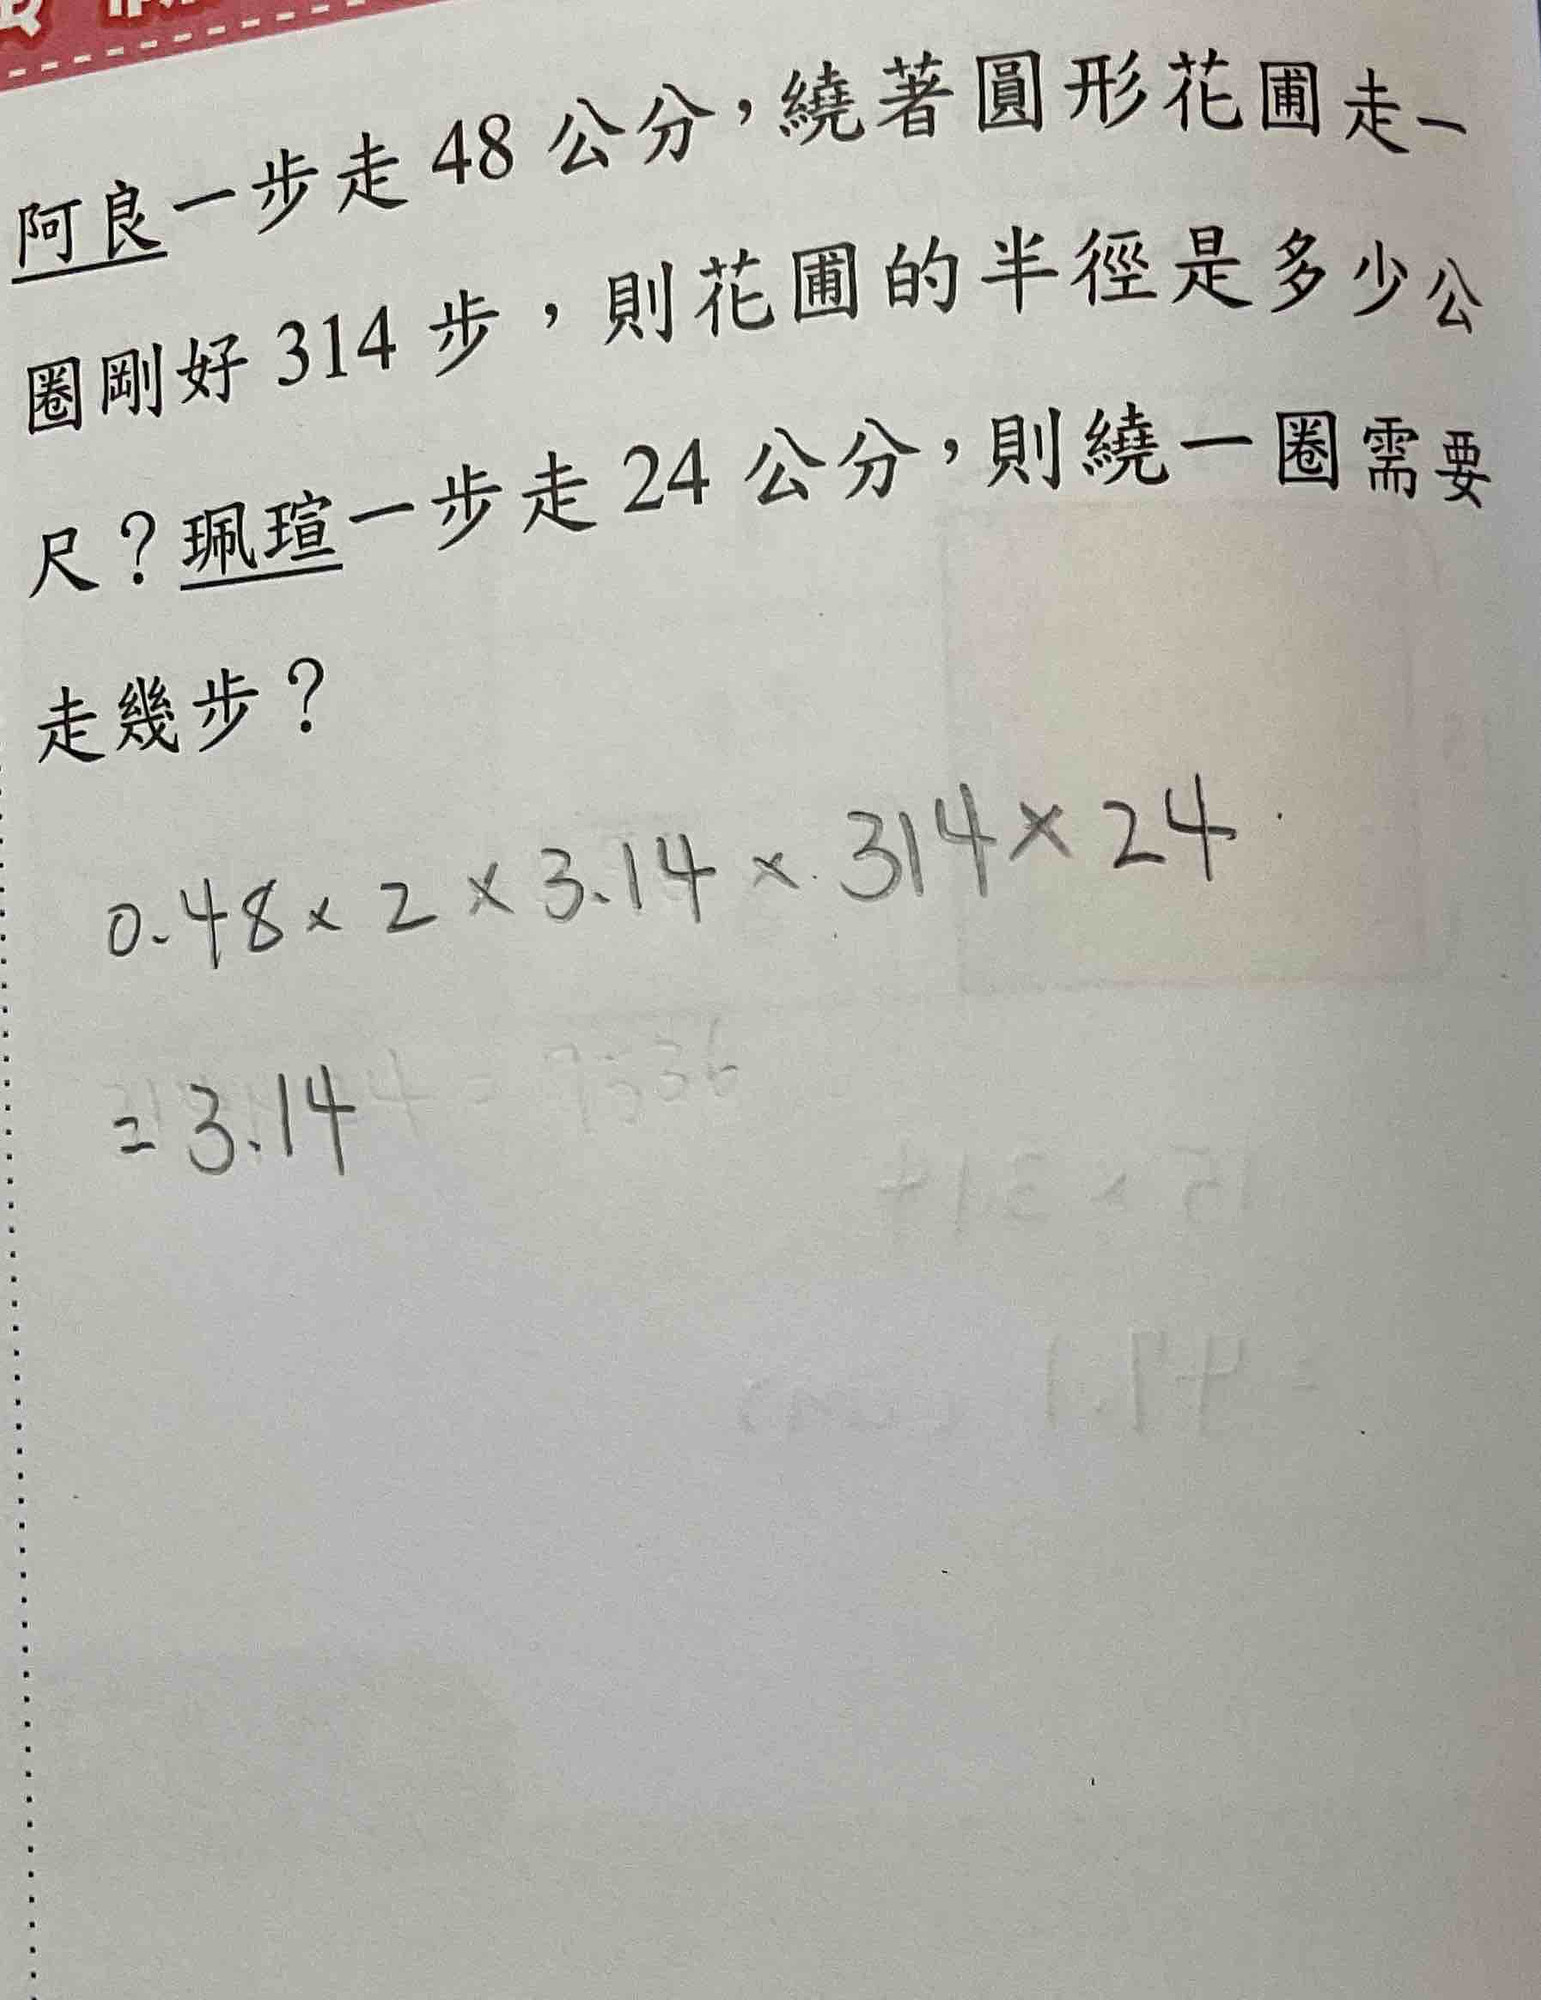 阿良一步走 48 公分，繞著圓形花圃走一
圈剛好 314 步，則花圃的半徑是多少公
尺？珮瑄一步走 24 公分，則繞一圈需要
走幾步？
0.48 × 2 × 3.14 × 314 × 24
= 3.14